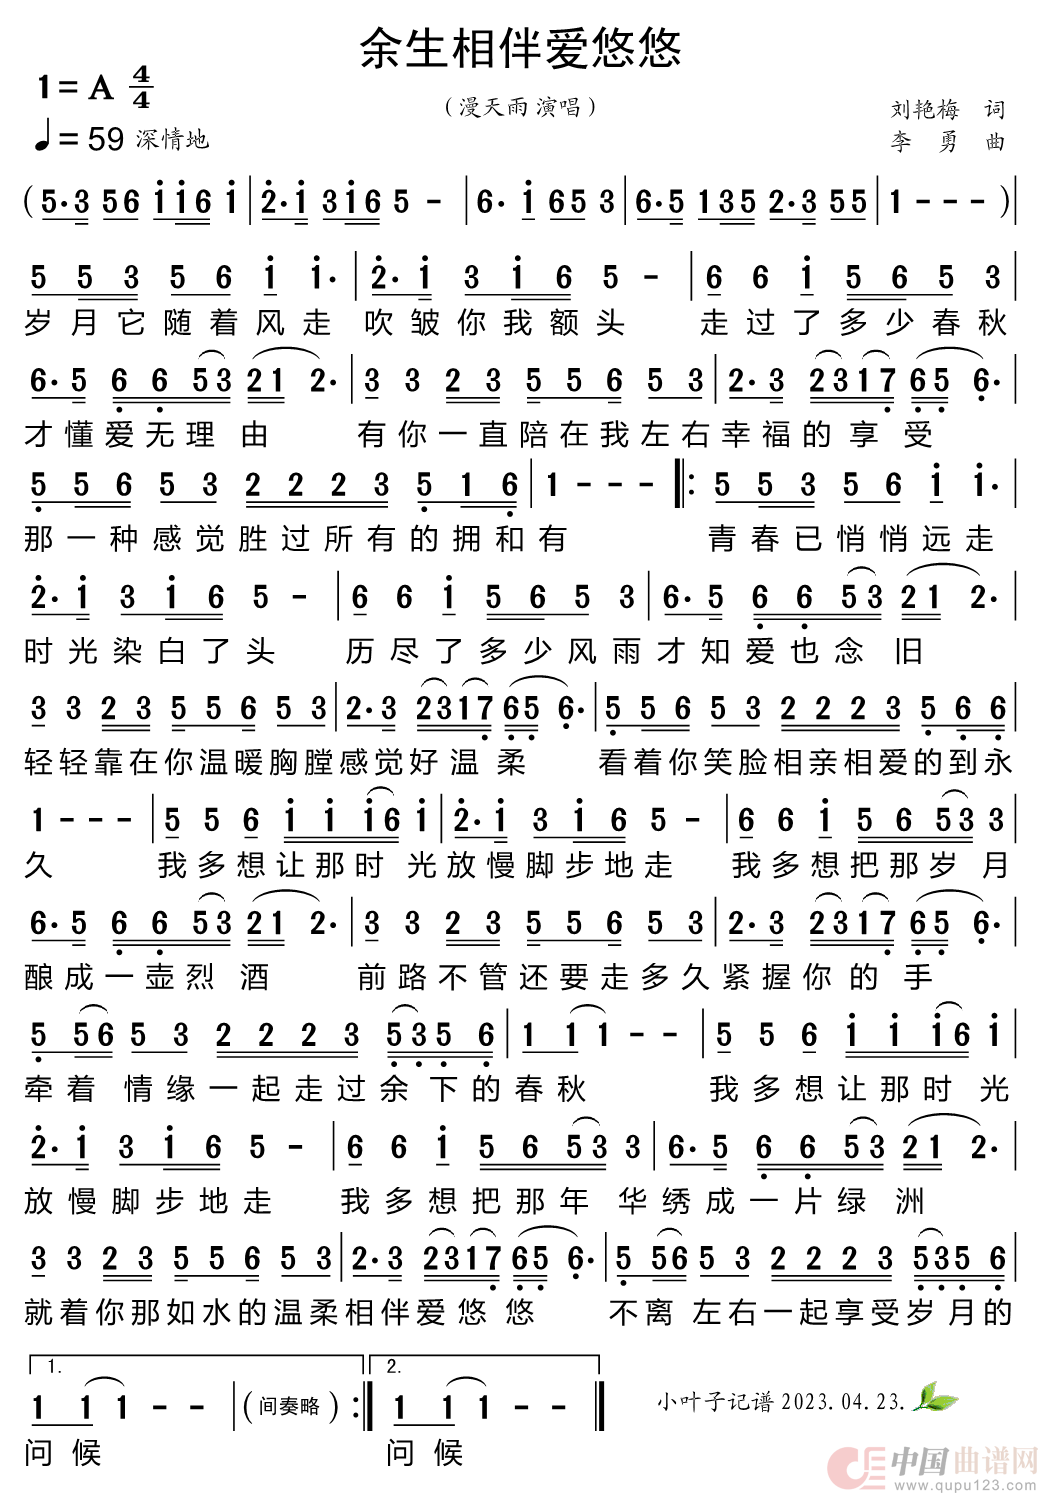 余生相伴爱悠悠
1=A 4/4
（漫天雨 演唱）
刘艳梅 词
♩=59 深情地
李 勇 曲
(5·3 56 116 1|2·1 316 5 -|6·1 65 3|6·5 135 2·3 55|1 - - -)|
5 5 3 5 6 1 1·|2·1 3 1 6 5 -|6 6 1 5 6 5 3|
岁月它随着风走 吹皱你我额头 走过了多少春秋
6·5 6 6 53 21 2·|3 3 2 3 5 5 6 5 3|2·3 2317 65 6·|
才懂爱无理由 有你一直陪在我左右幸福的享受
5 5 6 5 3 2 2 2 3 5 1 6|1 - - -‖:5 5 3 5 6 1 1·|
那一种感觉胜过所有的拥和有 青春已悄悄远走
2·1 3 1 6 5 -|6 6 1 5 6 5 3|6·5 6 6 53 21 2·|
时光染白了头 历尽了多少风雨才知爱也念旧
3 3 2 3 5 5 6 5 3|2·3 2317 65 6·|5 5 6 5 3 2 2 2 3 5 6 6|
轻轻靠在你温暖胸膛感觉好温柔 看着你笑脸相亲相爱的到永
1 - - -|5 5 6 1 1 16 1|2·1 3 1 6 5 -|6 6 1 5 6 53 3|
久 我多想让那时光放慢脚步地走 我多想把那岁月
6·5 6 6 53 21 2·|3 3 2 3 5 5 6 5 3|2·3 2317 65 6·|
酿成一壶烈酒 前路不管还要走多久紧握你的手
5 56 5 3 2 2 2 3 535 6|1 1 1 - -|5 5 6 1 1 16 1|
牵着情缘一起走过余下的春秋 我多想让那时光
2·1 3 1 6 5 -|6 6 1 5 6 53 3|6·5 6 6 53 21 2·|
放慢脚步地走 我多想把那年华绣成一片绿洲
3 3 2 3 5 5 6 5 3|2·3 2317 65 6·|5 56 5 3 2 2 2 3 535 6|
就着你那如水的温柔相伴爱悠悠 不离左右一起享受岁月的
1. 2.
1 1 1 - -|(间奏略):‖1 1 1 - -‖
小叶子记谱 2023.04.23.
问候 问候
中国曲谱网
www.qupu123.com